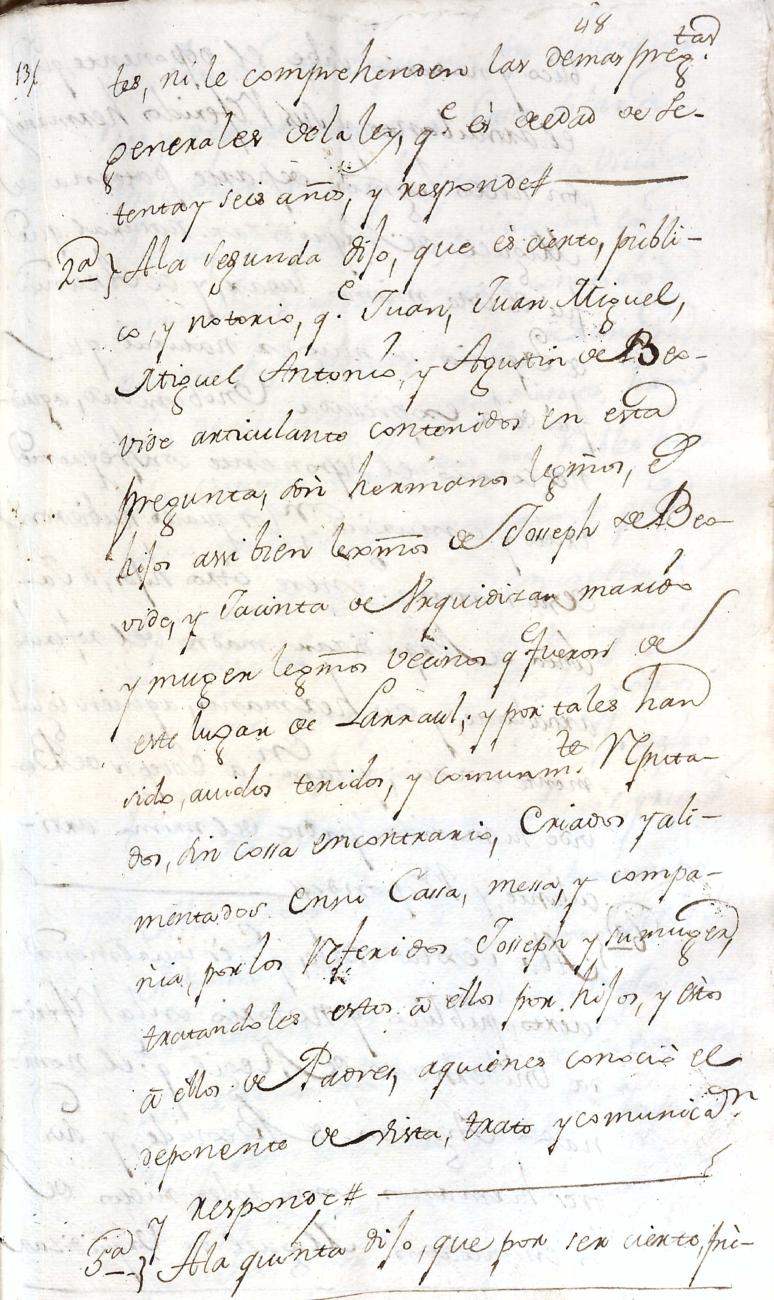 48
tes, ni le comprehenden las demas preg.tas
generales de la ley, q.e es de edad de se-
tenta y seis años, y responde#
2a} A la segunda dijo, que es cierto, publi-
co, y notorio, q.e Juan, Juan Miguel,
Miguel Antonio, y Agustin de Beo-
vide articulante contenidos en esta
pregunta, son hermanos legmos, e
hijos assi bien lexmos de Joseph de Beo-
vide, y Jacinta de Urquidizar marido
y muger legmos vecinos q.e fueron de
este lugar de Larraul; y por tales han
sido, avidos tenidos, y comunm.te Reputa-
dos, sin cossa en contrario, Criados y ali-
mentados en su Cassa, messa, y compa-
ñia, por los Referidos Joseph y su muger,
tratandoles estos a ellos por hijos, y estos
a ellos de Padres, a quienes conocio el
deponente de vista, trato y comunicaon
y responde#
5a} A la quinta dijo, que por ser cierto, pu-